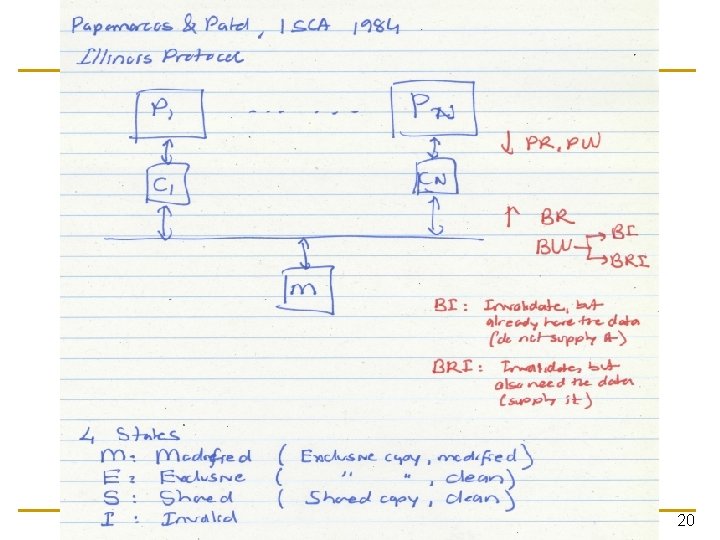 Papamarcos & Patel, ISCA 1984
Illinois Protocol
P1 - - - - - - - PN
↓ PR, PW
C1 CN
↑ BR
BW → BI
→ BRI
M
BI : Invalidate, but
already have the data
(do not supply it)
BRI : Invalidate, but
also need the data
(supply it)
4 States
M : Modified ( Exclusive copy, modified)
E : Exclusive ( " " , clean)
S : Shared ( Shared copy, clean)
I : Invalid
20